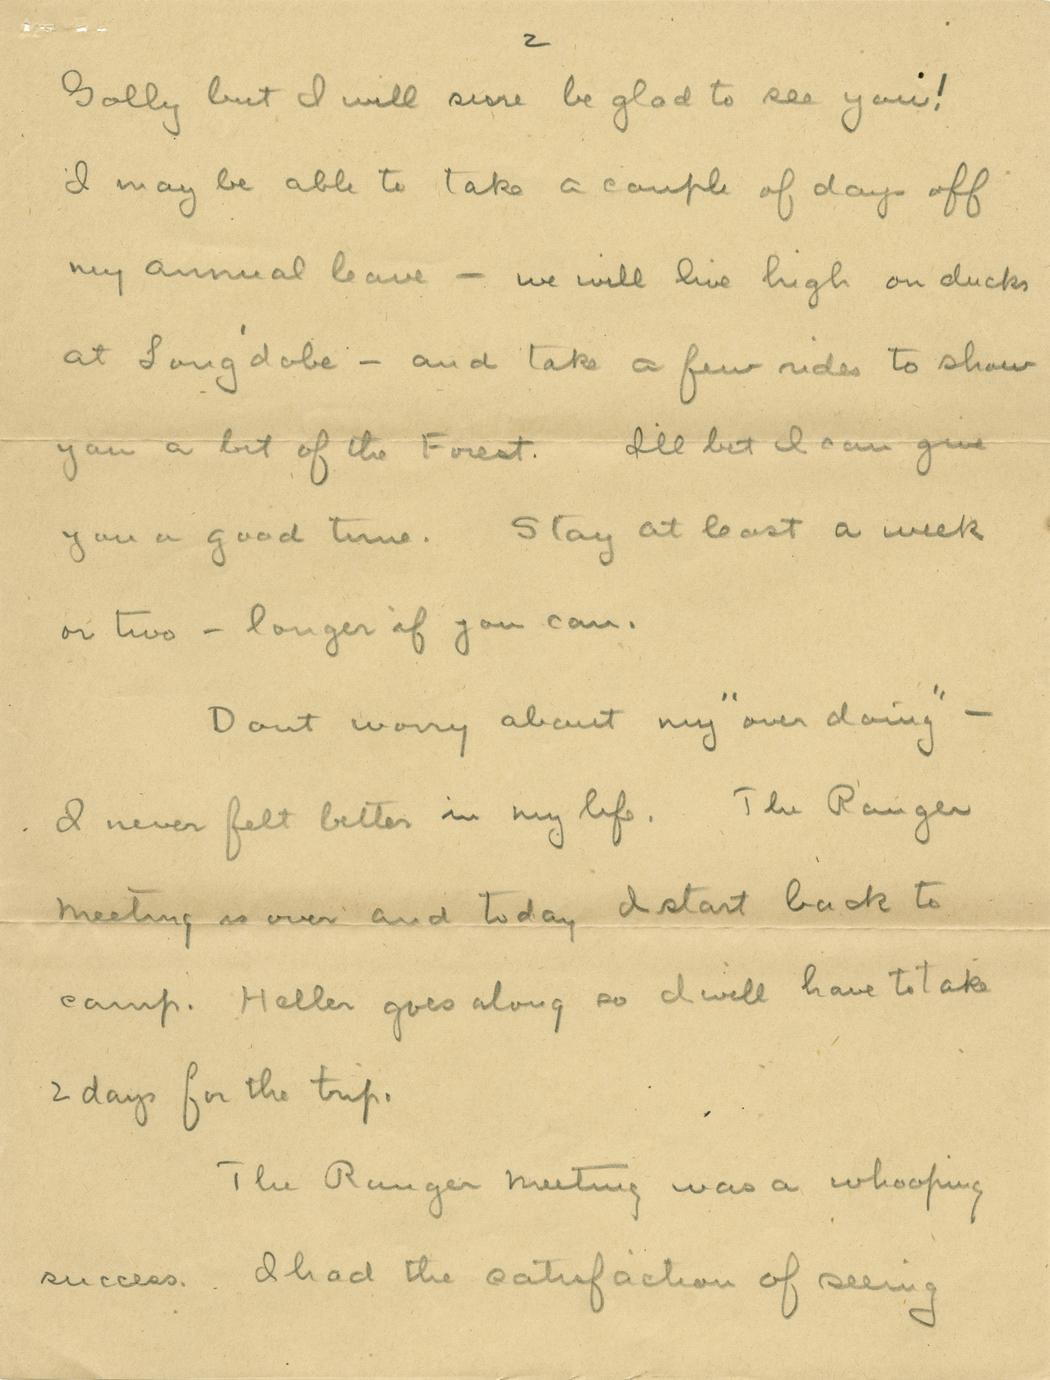 2
Golly but I will sure be glad to see you!
I may be able to take a couple of days off
my annual leave – we will live high on ducks
at Long'dobe – and take a few rides to show
you a bit of the Forest. I'll bet I can give
you a good time. Stay at least a week
or two – longer if you can.
Dont worry about my "over doing" –
I never felt better in my life. The Ranger
Meeting is over and today I start back to
camp. Heller goes along so I will have to take
2 days for the trip.
The Ranger Meeting was a whooping
success. I had the satisfaction of seeing